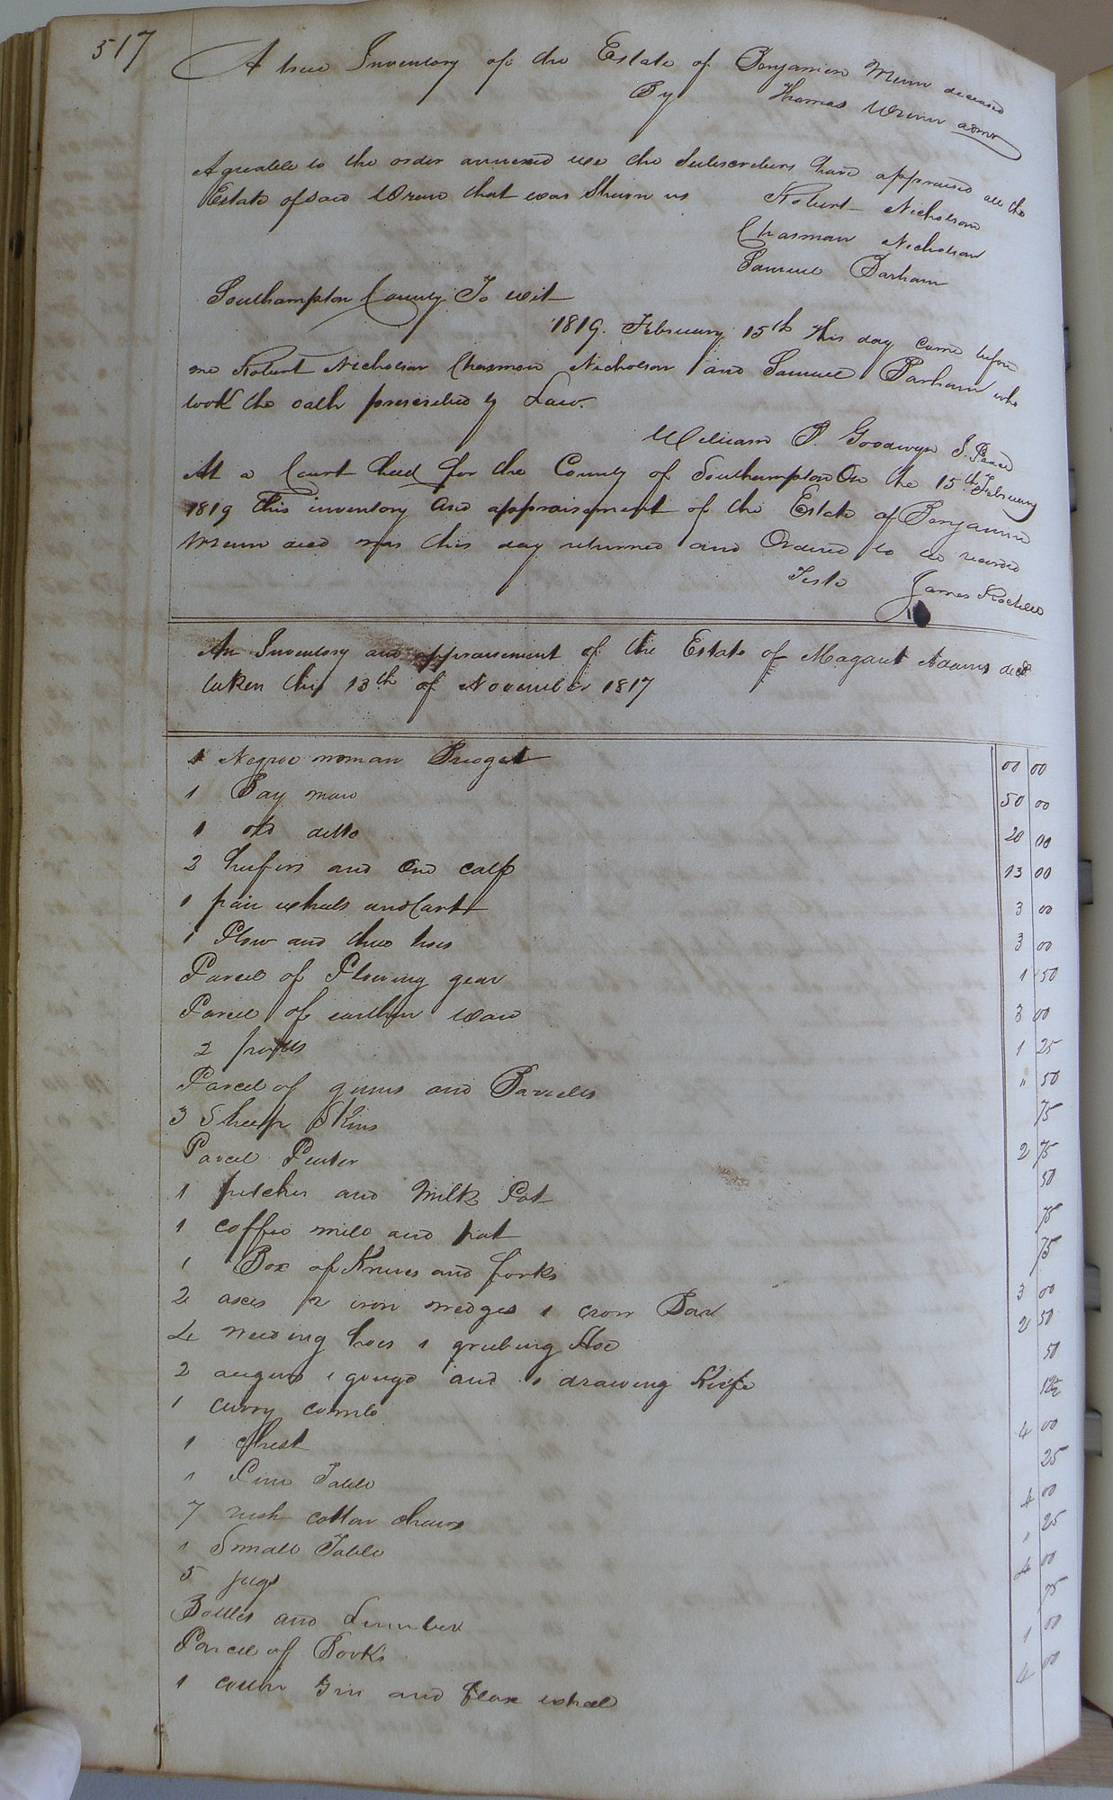 517
A true Inventory of the Estate of Benjamin Wrenn deceased
By Thomas Wrenn admr
Agreable to the order annexed we the Subscribers have appraised all the
Estate of said Wrenn that was Shewn us Robert Nicholson
Chasman Nicholson
Samuel Barham
Southampton County To wit
1819. February 15th This day came before
me Robert Nicholson Chasman Nicholson and Samuel Barham who
took the oath prescribed by Law.
William B. Goodwyn J. Peace
At a Court held for the County of Southampton On the 15th February
1819 This inventory and appraisement of the Estate of Benjamin
Wrenn decd was this day returned and Ordered to be recorded
Teste James Rochelle
An Inventory and appraisement of the Estate of Magaret Adams decd
taken this 13th of November 1817
1 Negroe woman Bridget 00 00
1 Bay mare 50 00
1 old ditto 20 00
2 heifers and one calf 13 00
1 pair wheels and Cart 3 00
1 Plow and three hoes 3 00
Parcel of Plowing gear 1 50
Parcel of earthen ware 3 00
2 1 25
Parcel of gums and Barrels " 50
3 Sheep Skins 75
Parcel Pewter 2 75
1 pitcher and Milk Pot 50
1 coffee mill and pot 75
1 Box of Knives and forks 75
2 axes 2 iron wedges 1 crow Bar 3 00
4 weeding hoes 1 grubing Hoe 2 50
2 augurs 1 gouge and 1 drawing Knife 50
1 curry comb 12½
1 Chest 4 00
1 Pine Table 25
7 rush bottom chairs 4 00
1 Small Table 1 25
5 jugs 4 00
Bottles and Lumber 75
Parcel of Books 1 00
1 cotton Gin and flax wheel 4 00